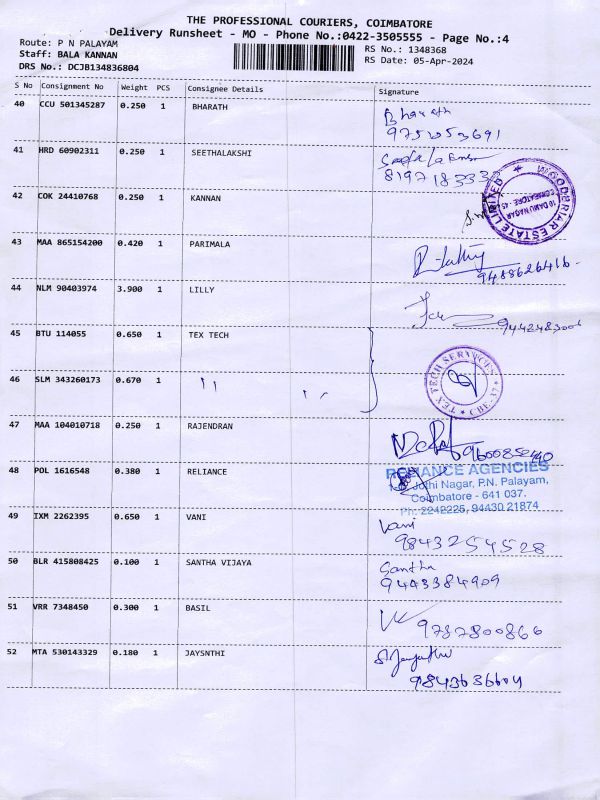 THE PROFESSIONAL COURIERS, COIMBATORE
Delivery Runsheet - MO - Phone No.:0422-3505555 - Page No.:4
Route: P N PALAYAM
Staff: BALA KANNAN
DRS No.: DCJB134836804
RS No.: 1348368
RS Date: 05-Apr-2024
S No Consignment No Weight PCS Consignee Details Signature
40 CCU 501345287 0.250 1 BHARATH Bharath
9752053691
41 HRD 60902311 0.250 1 SEETHALAKSHI
8197183333
42 COK 24410768 0.250 1 KANNAN
ESTATE LIMITED
10 DAMU NAGAR
COIMBATORE - 45
43 MAA 865154200 0.420 1 PARIMALA
9488626416
44 NLM 90403974 3.900 1 LILLY
9442483006
45 BTU 114055 0.650 1 TEX TECH
46 SLM 343260173 0.670 1 " "
TEX TECH SERVICES ★ CBE-37 ★
47 MAA 104010718 0.250 1 RAJENDRAN
9600852440
48 POL 1616548 0.380 1 RELIANCE
RELIANCE AGENCIES
Jothi Nagar, P.N. Palayam,
Coimbatore - 641 037.
Ph: 2242225, 94430 21874
49 IXM 2262395 0.650 1 VANI Vani
9843254528
50 BLR 415808425 0.100 1 SANTHA VIJAYA Santha
9443384909
51 VRR 7348450 0.300 1 BASIL
9787800866
52 MTA 530143329 0.180 1 JAYSNTHI S. Jayanthi
9843636604